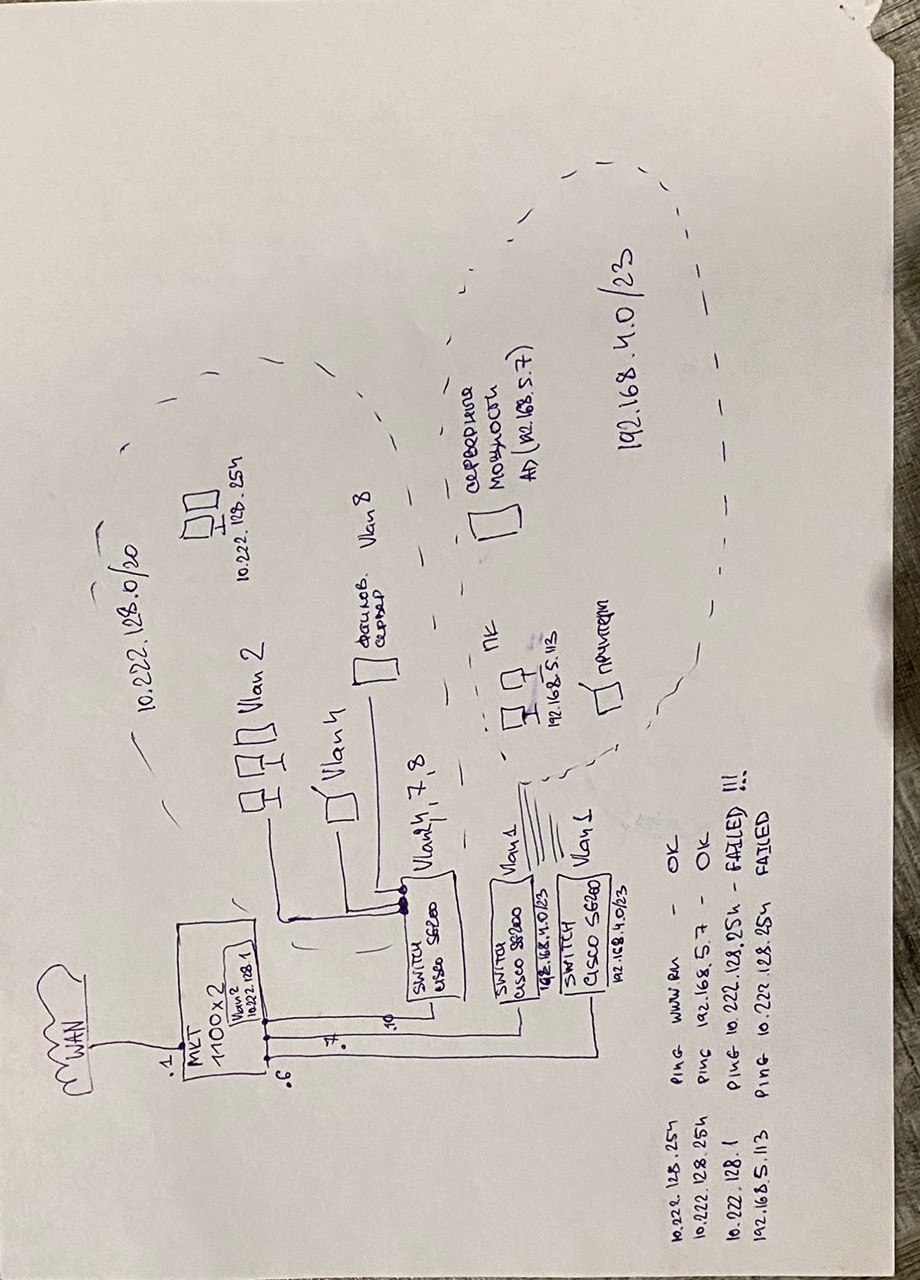 WAN
.1
MKT
1100x2
Vlan2
10.222.128.1
.6
.7
.10
10.222.128.0/20
Vlan 2
10.222.128.254
Vlan 4
файлов.
сервер
Vlan 8
SWITCH
CISCO SG200
Vlan 2,4,7,8
SWITCH
CISCO SG200
192.168.4.0/23
Vlan 1
SWITCH
CISCO SG200
192.168.4.0/23
Vlan 1
ПК
192.168.5.113
принтеры
серверные
мощности
AD (192.168.5.7)
192.168.4.0/23
10.222.128.254 PING WWW - OK
10.222.128.254 PING 192.168.5.7 - OK
10.222.128.1 PING 10.222.128.254 - FAILED !!!
192.168.5.113 PING 10.222.128.254 FAILED